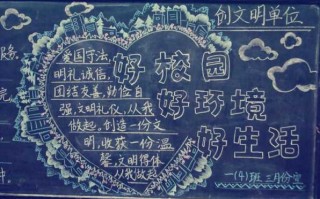 创文明单位
爱国守法，
明礼诚信，
团结友善，勤俭自
强，文明礼仪，从我
做起，创造一份文
明，收获一份温
馨，文明得体
从我做起
好校园
好环境
好生活
一(4)班 三月份